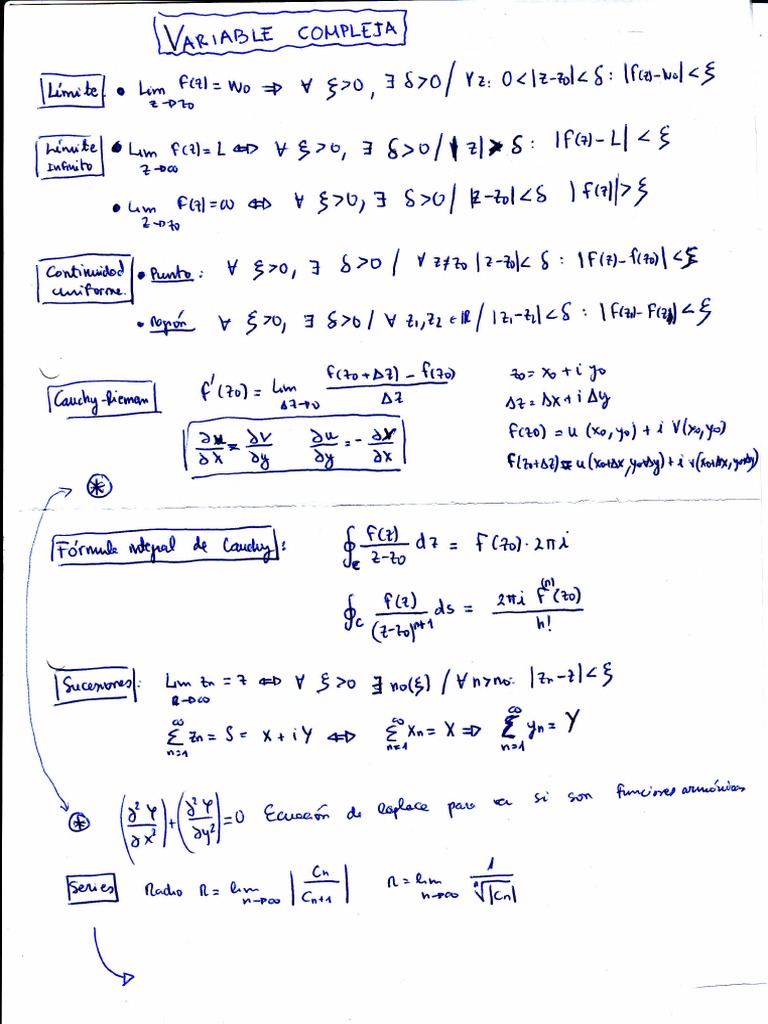 VARIABLE COMPLEJA
Límite • Lim z→z0 f(z) = W0 ⇒ ∀ ξ>0, ∃ δ>0 / ∀z: 0<|z-z0|<δ: |f(z)-W0|<ξ
Límite Infinito • Lim z→∞ f(z) = L ⇔ ∀ ξ>0, ∃ δ>0 / |z|>δ: |f(z)-L|<ξ
• Lim z→z0 f(z) = ∞ ⇔ ∀ ξ>0, ∃ δ>0 / |z-z0|<δ |f(z)|>ξ
Continuidad uniforme. • Punto: ∀ ξ>0, ∃ δ>0 / ∀ z≠z0 |z-z0|<δ: |f(z)-f(z0)|<ξ
• Región ∀ ξ>0, ∃ δ>0 / ∀ z1,z2 ∈ R / |z1-z2|<δ: |f(z1)-f(z2)|<ξ
Cauchy-Rieman f'(z0) = Lim Δz→0 (f(z0+Δz) - f(z0)) / Δz
z0 = x0 + i y0
Δz = Δx + i Δy
∂u/∂x = ∂v/∂y ∂u/∂y = - ∂v/∂x
f(z0) = u (x0,y0) + i V(x0,y0)
f(z0+Δz) = u(x0+Δx, y0+Δy) + i v(x0+Δx, y0+Δy)
*
Fórmula integral de Cauchy: ∮c f(z)/(z-z0) dz = f(z0)·2πi
∮C f(z)/(z-z0)^(n+1) ds = 2πi f^(n)(z0) / n!
Sucesiones: Lim n→∞ zn = z ⇔ ∀ ξ>0 ∃ n0(ξ) / ∀n>n0: |zn-z|<ξ
∑_{n=1}^∞ zn = S = X + i Y ⇔ ∑_{n=1}^∞ xn = X ⇒ ∑_{n=1}^∞ yn = Y
* (∂²φ/∂x²) + (∂²φ/∂y²) = 0 Ecuación de Laplace para ver si son funciones armónicas
Series Radio R = lim n→∞ |Cn/Cn+1| R = lim n→∞ 1/ⁿ√|Cn|